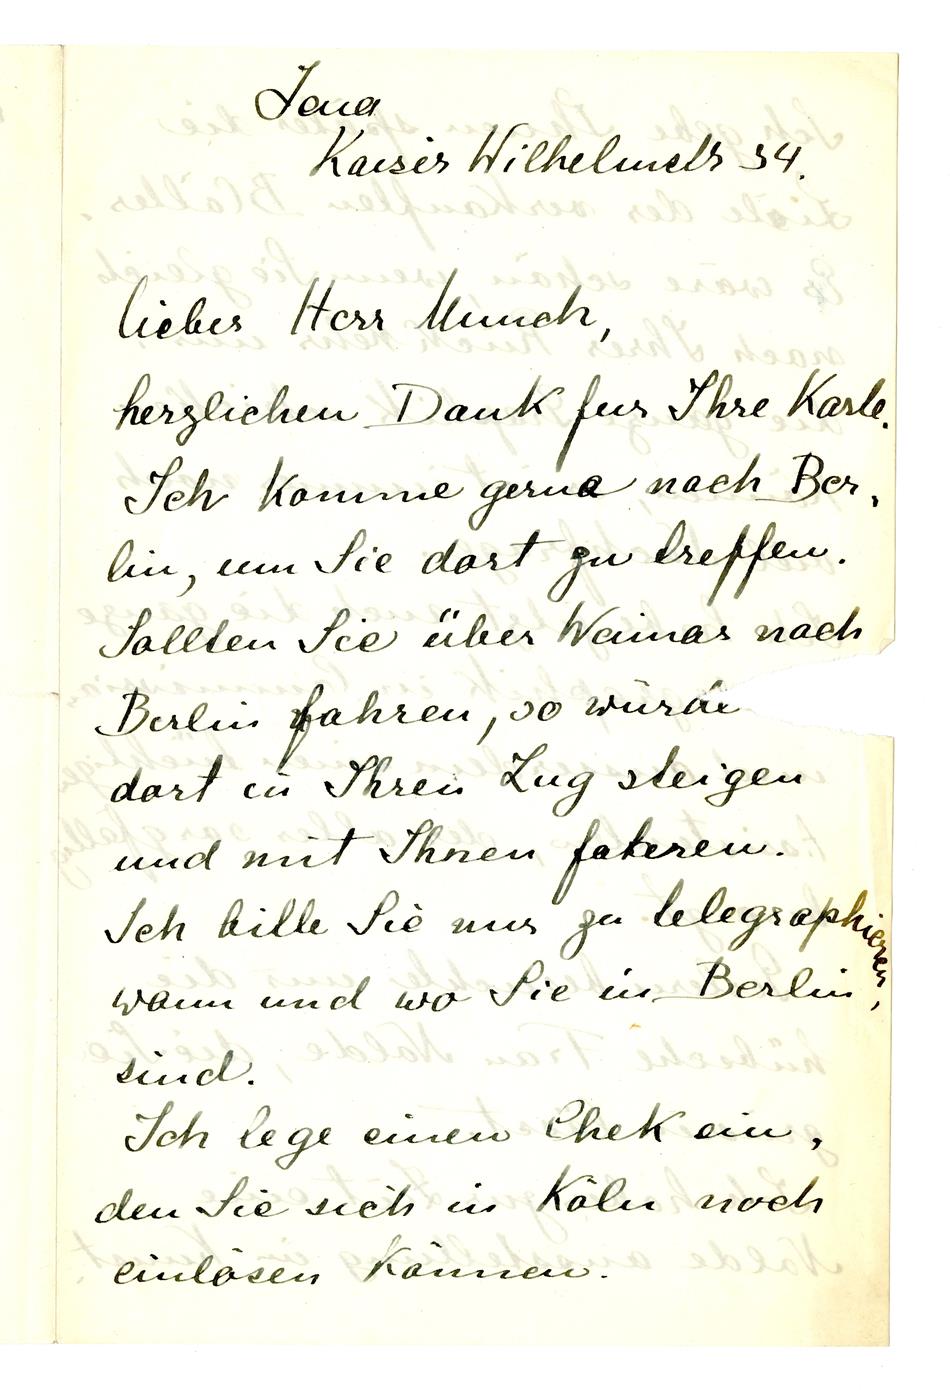 Jena
Kaiser Wilhelmstr 34.
lieber Herr Munch,
herzlichen Dank fur Ihre Karte.
Ich komme gerne nach Ber-
lin, um Sie dort zu treffen.
Sollten Sie über Weimar nach
Berlin fahren, so würde
dort in Ihren Zug steigen
und mit Ihnen fahren.
Ich bitte Sie nur zu telegraphieren,
wann und wo Sie in Berlin
sind.
Ich lege einen Chek ein,
den Sie sich in Köln noch
einlösen können.